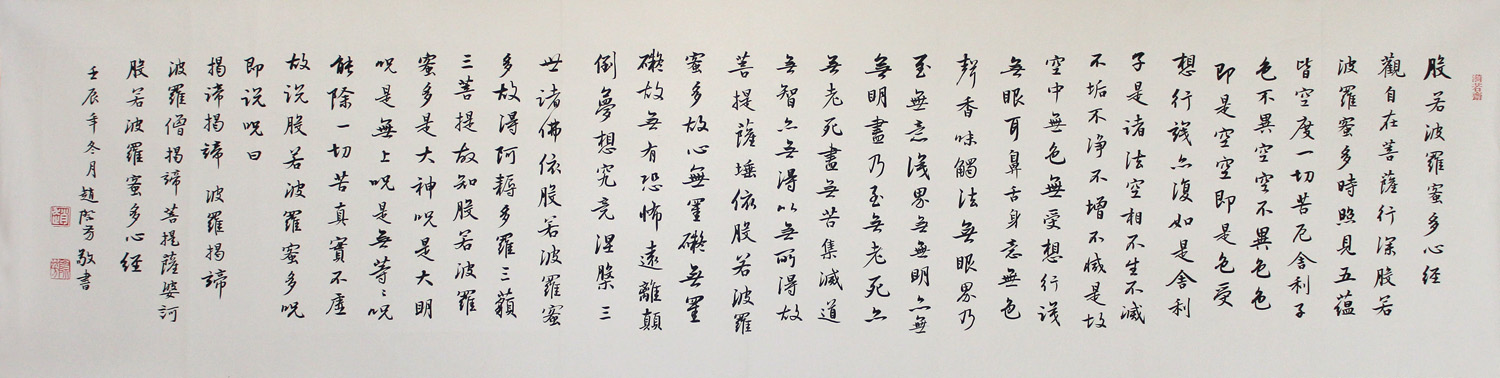 般若波羅蜜多心經
觀自在菩薩行深般若
波羅蜜多時照見五蘊
皆空度一切苦厄舍利子
色不異空空不異色色
即是空空即是色受
想行識亦復如是舍利
子是諸法空相不生不滅
不垢不淨不增不減是故
空中無色無受想行識
無眼耳鼻舌身意無色
聲香味觸法無眼界乃
至無意識界無無明亦無
無明盡乃至無老死亦
無老死盡無苦集滅道
無智亦無得以無所得故
菩提薩埵依般若波羅
蜜多故心無罣礙無罣
礙故無有恐怖遠離顛
倒夢想究竟涅槃三
世諸佛依般若波羅蜜
多故得阿耨多羅三藐
三菩提故知般若波羅
蜜多是大神呪是大明
呪是無上呪是無等〻呪
能除一切苦真實不虛
故說般若波羅蜜多呪
即說呪曰
揭諦揭諦 波羅揭諦
波羅僧揭諦 菩提薩婆訶
般若波羅蜜多心經
壬辰年冬月趙芳敬書